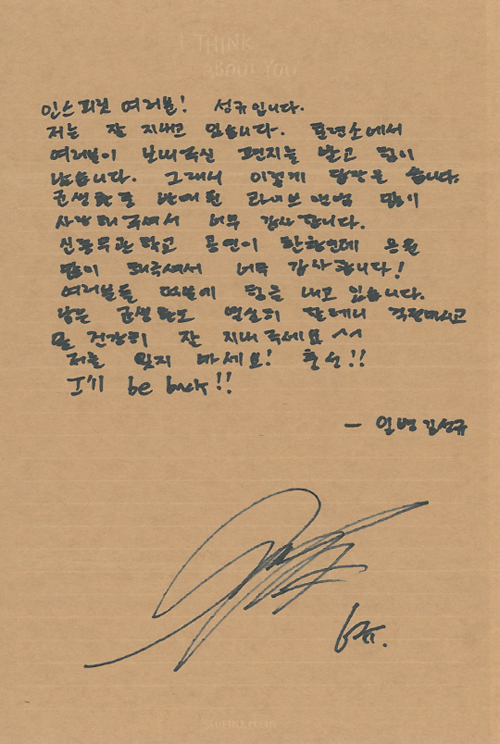 I THINK
ABOUT YOU
인스피릿 여러분! 성규입니다.
저는 잘 지내고 있습니다. 훈련소에서
여러분이 보내주신 편지들 받고 힘이
났습니다. 그래서 이렇게 답장을 씁니다.
군생활을 발매된 라이브 앨범 많이
사랑해주셔서 너무 감사합니다.
신흥무관학교 공연이 한창인데 응원
많이 해주셔서 너무 감사합니다!
여러분들 덕분에 힘을 내고 있습니다.
남은 군생활도 열심히 할테니 걱정마시고
몸 건강히 잘 지내주세요 ^^
저를 잊지 마세요! 충성!!
I'll be back!!
- 일병 김성규